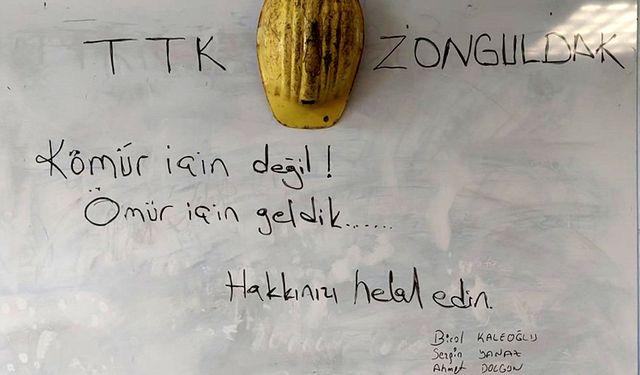 TTK ZONGULDAK
Kömür için değil!
Ömür için geldik......
Hakkınızı helal edin.
Birol KALEOĞLU
Sezgin YANAZ
Ahmet DOLGUN